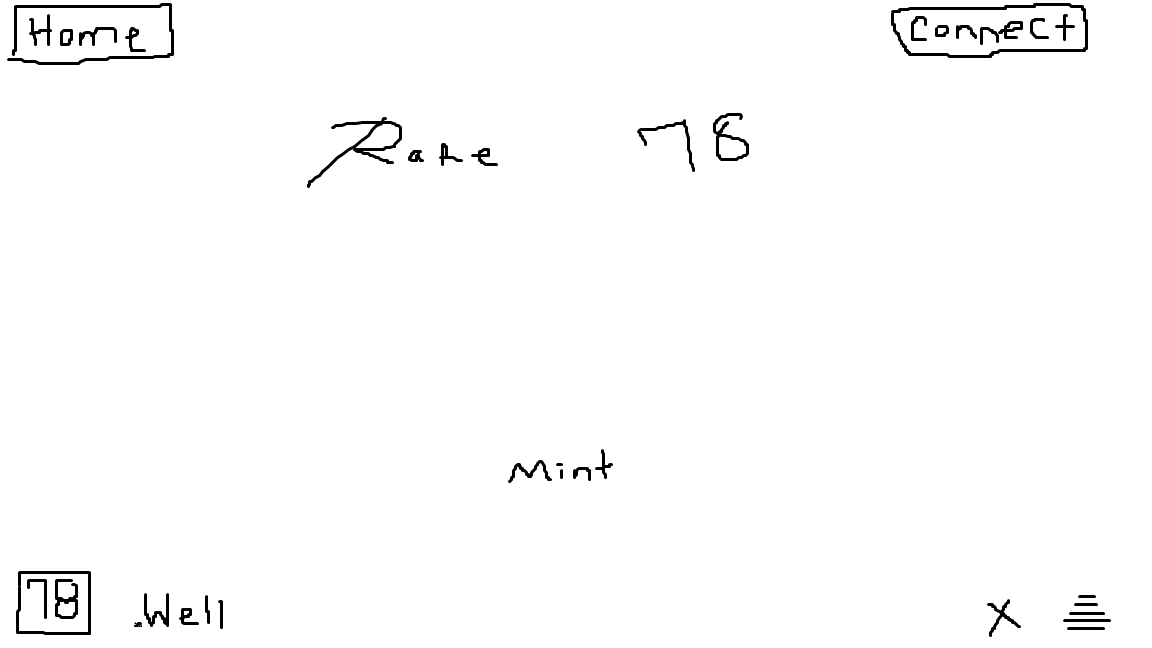 Home Connect
Rare 78
Mint
78 .Well X